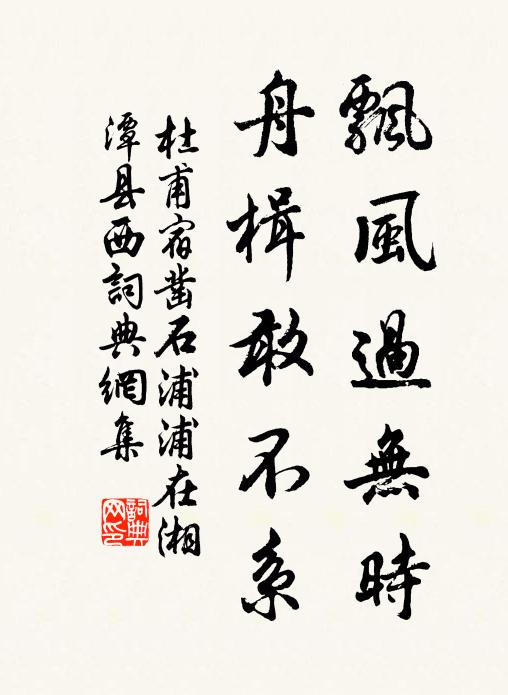 飄風過無時
舟楫敢不系
杜甫宿凿石浦浦在湘
潭县西詞典網集
詞典
网印